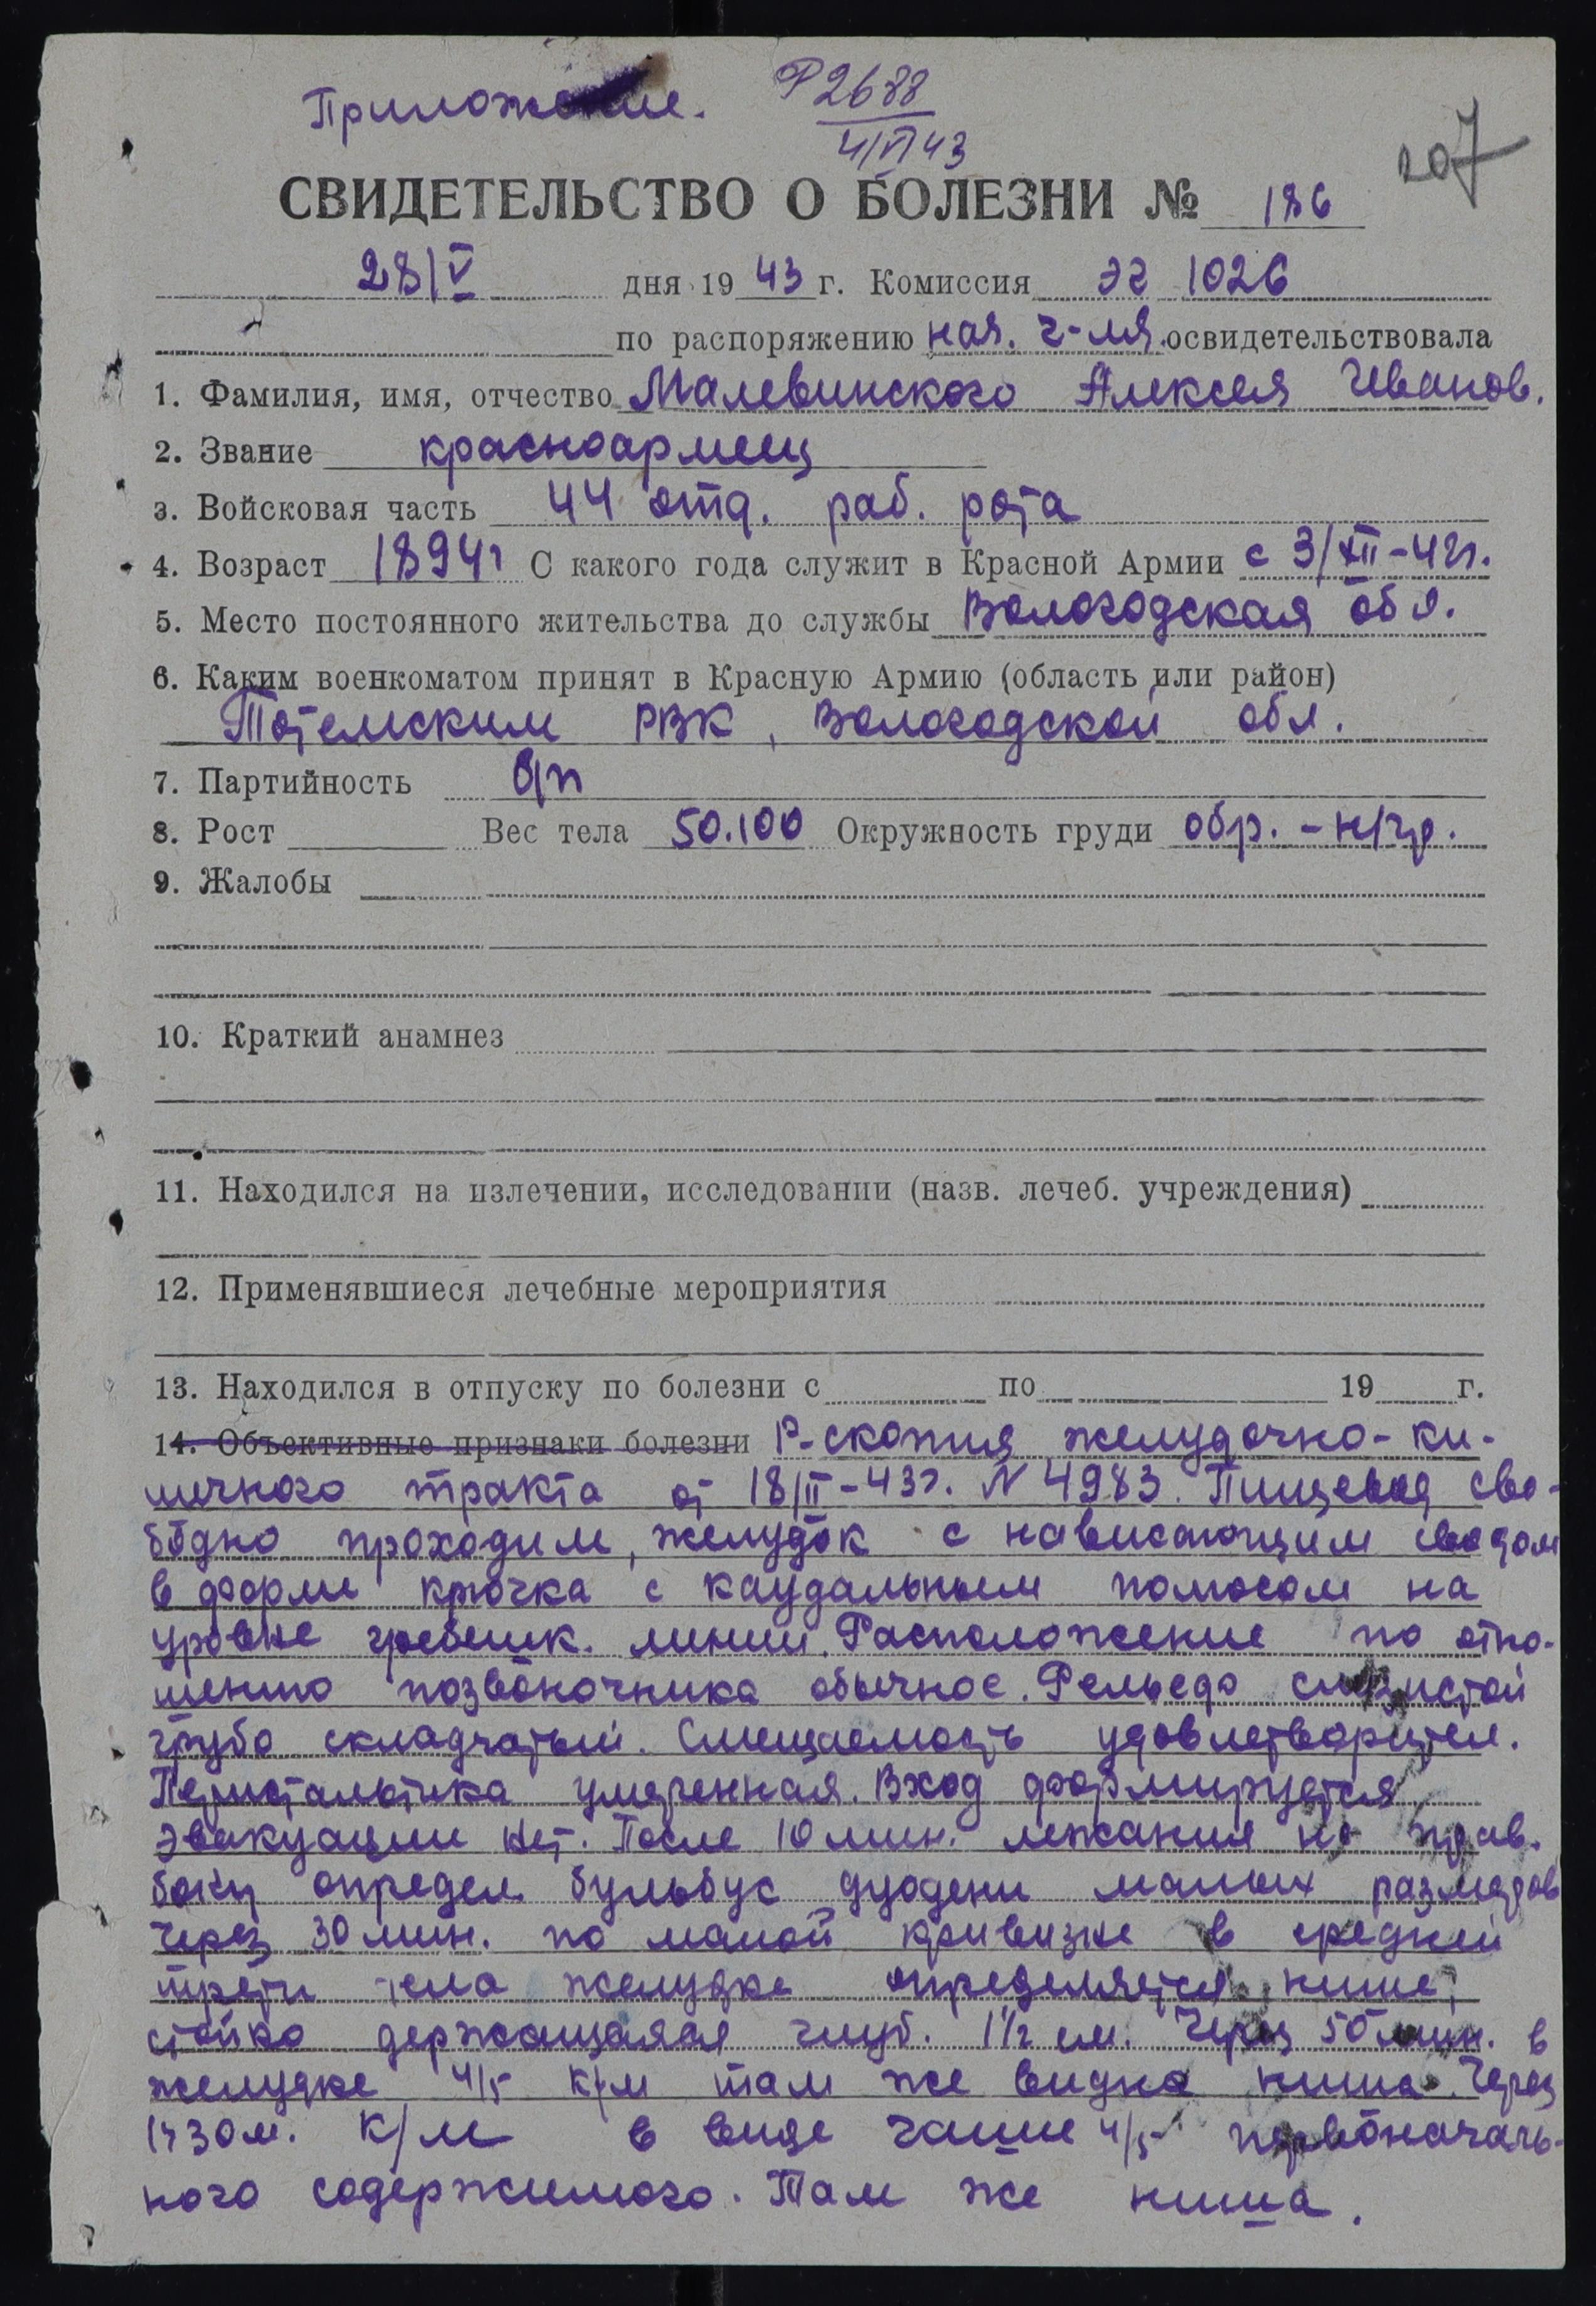 Приложение. Р2688
4/VI 43
207
СВИДЕТЕЛЬСТВО О БОЛЕЗНИ № 186
28/V дня 1943 г. Комиссия ЭГ 1026
по распоряжению нач. г-ля освидетельствовала
1. Фамилия, имя, отчество Малевинского Алексея Иванов.
2. Звание красноармеец
3. Войсковая часть 44 отд. раб. рота
4. Возраст 1894г С какого года служит в Красной Армии с 3/XII-42г.
5. Место постоянного жительства до службы Вологодская обл.
6. Каким военкоматом принят в Красную Армию (область или район)
Тотемским РВК, Вологодской обл.
7. Партийность б/п
8. Рост Вес тела 50.100 Окружность груди обр. - н/гр.
9. Жалобы
10. Краткий анамнез
11. Находился на излечении, исследовании (назв. лечеб. учреждения)
12. Применявшиеся лечебные мероприятия
13. Находился в отпуску по болезни с по 19 г.
14. Объективные признаки болезни Р-скопия желудочно-ки-
шечного тракта от 18/II-43г. N 4983. Пищевод сво-
бодно проходим, желудок с нависающим сводом
в форме крючка с каудальным полюсом на
уровне гребешк. линии. Расположение по отно-
шению позвоночника обычное. Рельеф слизистой
грубо складчатый. Смещаемость удовлетворител.
Перистальтика умеренная. Вход формируется
эвакуации нет. После 10 мин. лежания на прав.
боку определ. бульбус дуодени малых размеров
Через 30 мин. по малой кривизне в средней
трети тела желудка определяется ниша,
стойко держащаяся глуб. 1½ см. Через 50 мин. в
желудке 4/5 к/м там же видна ниша. Через
1ч 30м. к/м в виде чаши 4/5 первоначаль-
ного содержимого. Там же ниша.